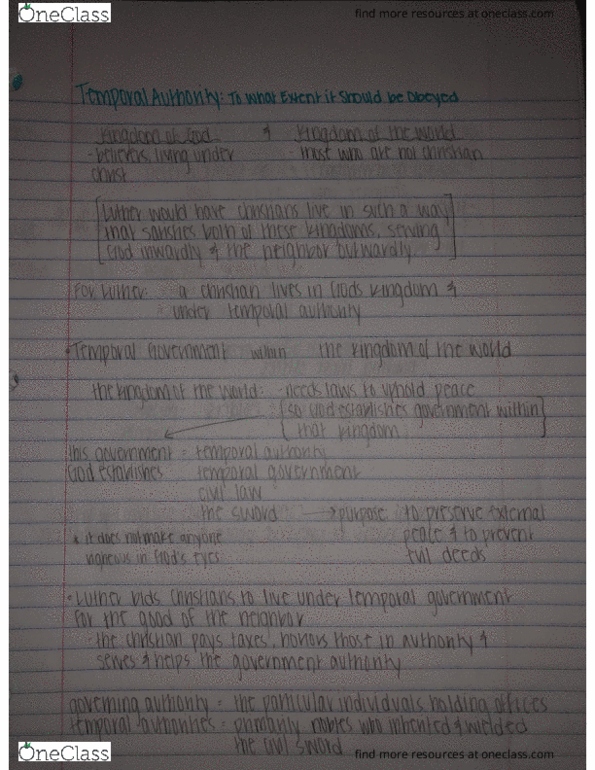 OneClass
find more resources at oneclass.com
Temporal Authority: To What Extent it Should be Obeyed
Kingdom of God & Kingdom of the World
- believers, living under - those who are not christian
christ
[Luther would have christians live in such a way
that satisfies both of these kingdoms, serving
God inwardly & the neighbor outwardly]
For Luther: a christian lives in Gods kingdom &
under temporal authority
• Temporal Government within the kingdom of the world
the kingdom of the world: - needs laws to uphold peace
[so God establishes government within
that kingdom]
this government = temporal authority
God establishes temporal government
civil law
the sword → purpose: to preserve external
* it does not make anyone peace & to prevent
righteous in God's eyes evil deeds
• Luther bids christians to live under temporal government
for the good of the neighbor
- the christian pays taxes, honors those in authority &
serves & helps the government authority
governing authority = the particular individuals holding offices
temporal authorities = primarily nobles who inherited & wielded
the civil sword
OneClass
find more resources at oneclass.com